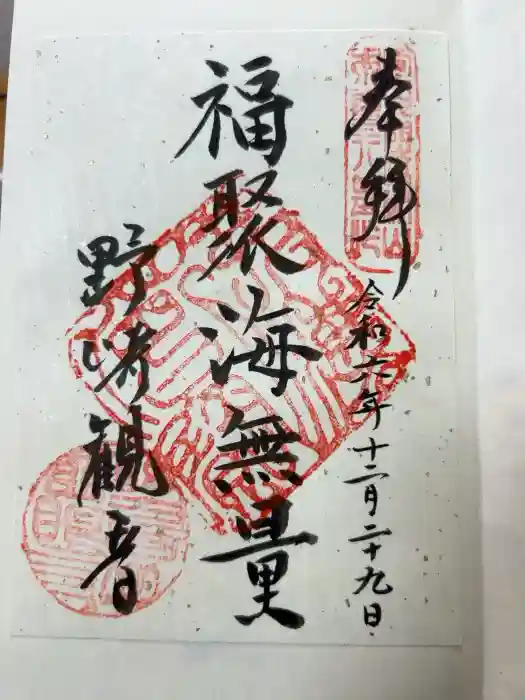 奉拝
令和六年十二月二十九日
福聚海無量
野崎観音